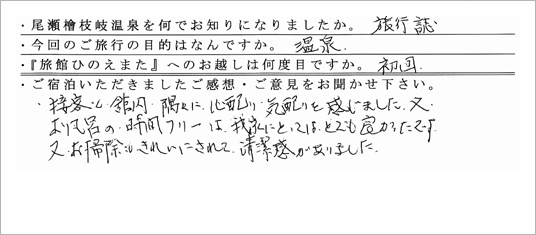 ・尾瀬檜枝岐温泉を何でお知りになりましたか。 旅行誌
・今回のご旅行の目的はなんですか。 温泉.
・『旅館ひのえまた』へのお越しは何度目ですか。 初回.
・ご宿泊いただきましたご感想・ご意見をお聞かせ下さい。
・接客も館内隅々に心配り.気配りを感じました.又
お風呂の時間フリーは、我家にとっては、とても良かったです
又.お掃除もきれいにされて.清潔感がありました.